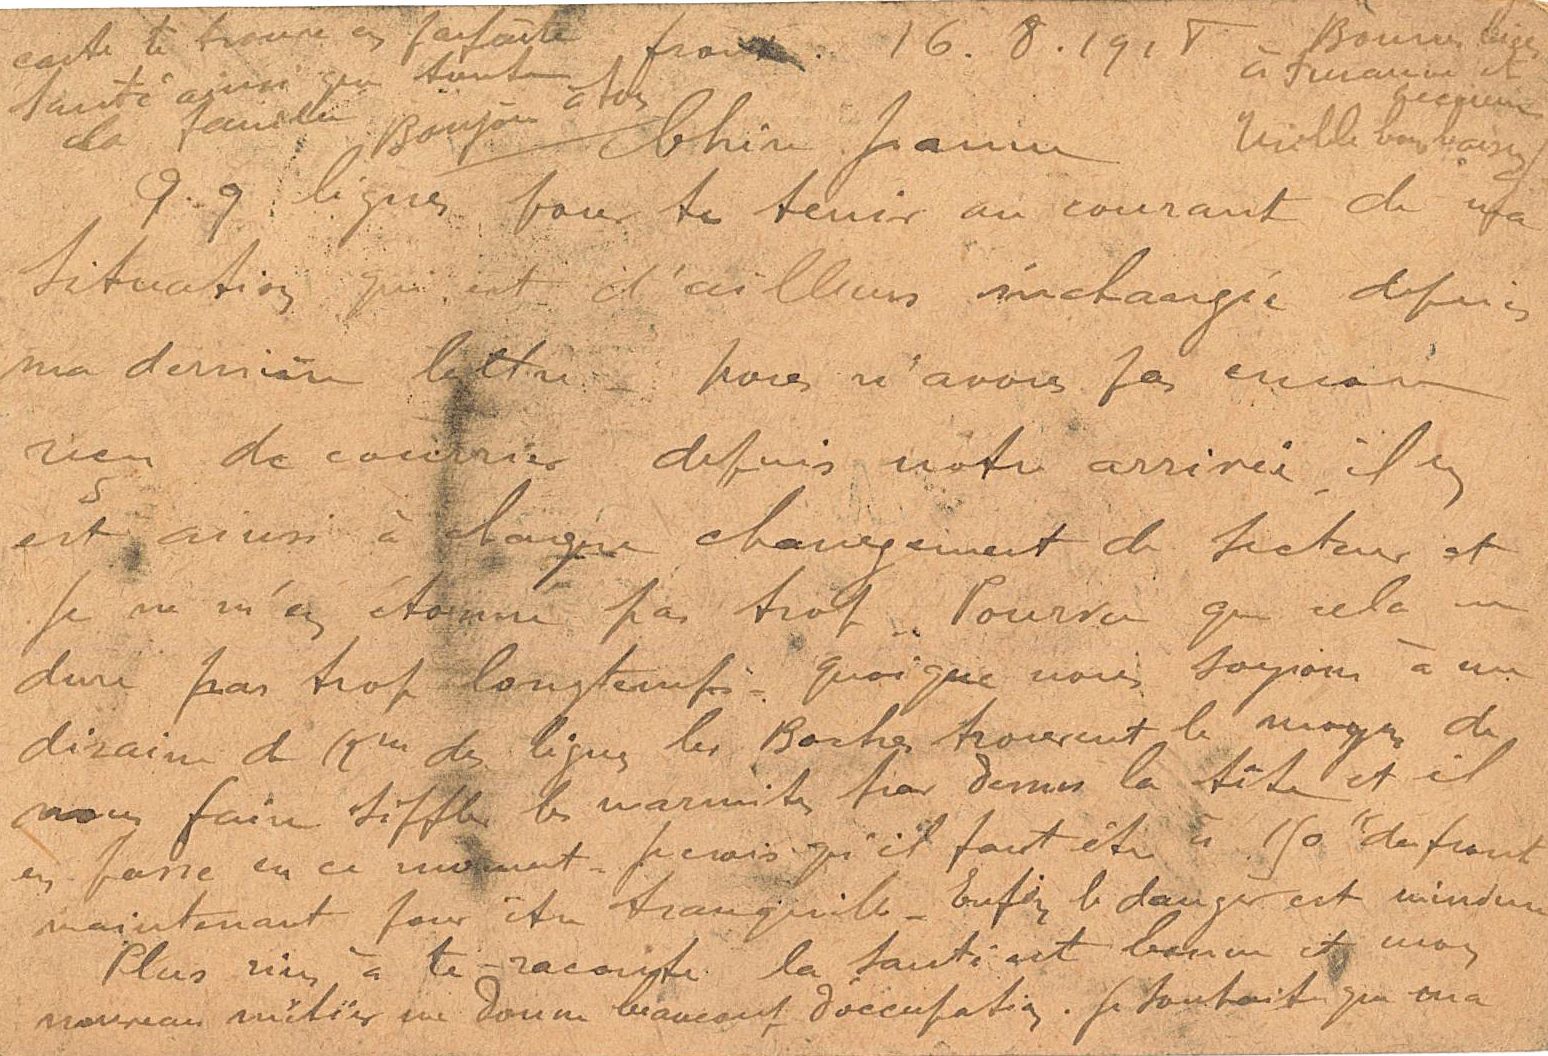 front. 16.8.1918
Chère Jeanne
q.q. lignes pour te tenir au courant de ma
situation qui est d'ailleurs inchangée depuis
ma dernière lettre - nous n'avons pas encore
rien de courrier depuis notre arrivée il en
est ainsi à chaque changement de secteur et
je ne m'en étonne pas trop - Pourvu que cela ne
dure pas trop longtemps - quoique nous soyons à une
dizaine de Km des lignes les Boches trouvent le moyen de
nous faire siffler les marmites par dessus la tête et il
en passe en ce moment - je crois qu'il faut être à 150 Km du front
maintenant pour être tranquille - Enfin le danger est moindre
Plus rien à te raconter la santé est bonne et mon
nouveau métier me donne beaucoup d'occupation. Je souhaite que ma
carte te trouve en parfaite
santé ainsi que toute
la famille Bonjour à tous
Bonnes bises
à Suzanne et
Vieille bonbaiss